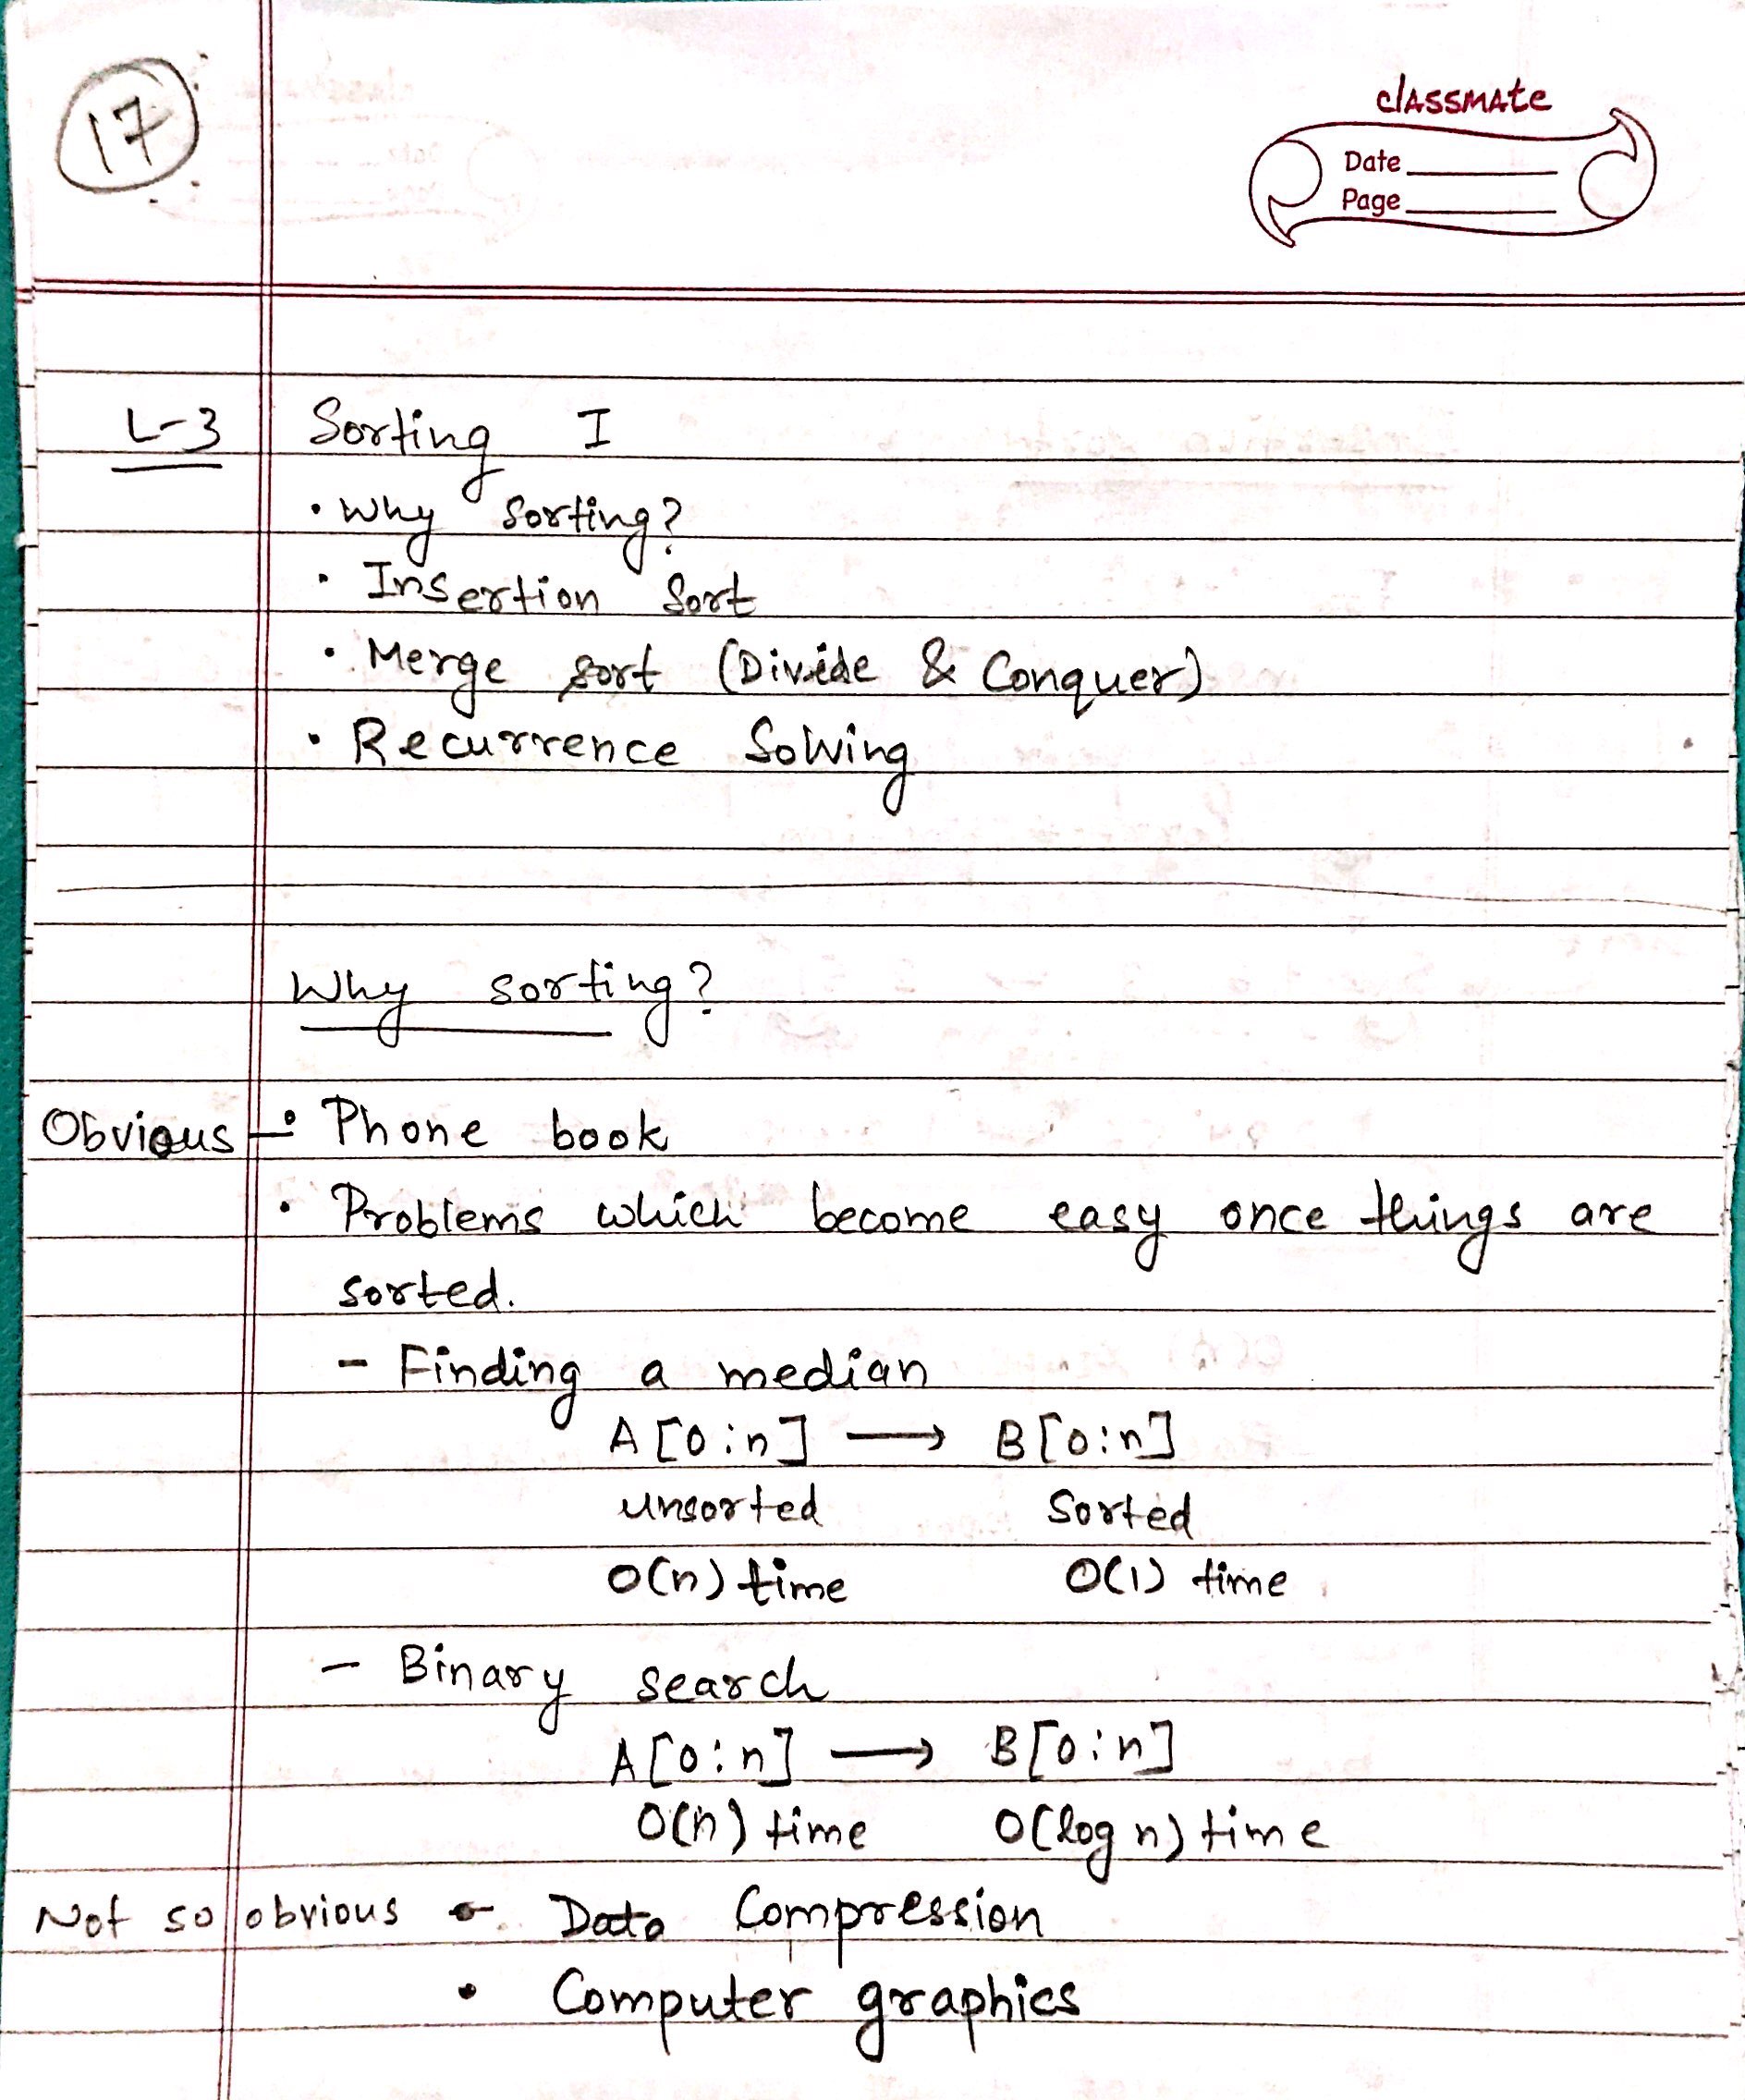 17
classmate
Date
Page
L-3 Sorting I
• Why sorting?
• Insertion Sort
• Merge sort (Divide & Conquer)
• Recurrence Solving
Why sorting?
Obvious - • Phone book
• Problems which become easy once things are
sorted.
- Finding a median
A[0:n] → B[0:n]
unsorted Sorted
O(n) time O(1) time
- Binary search
A[0:n] → B[0:n]
O(n) time O(log n) time
Not so obvious • Data Compression
• Computer graphics